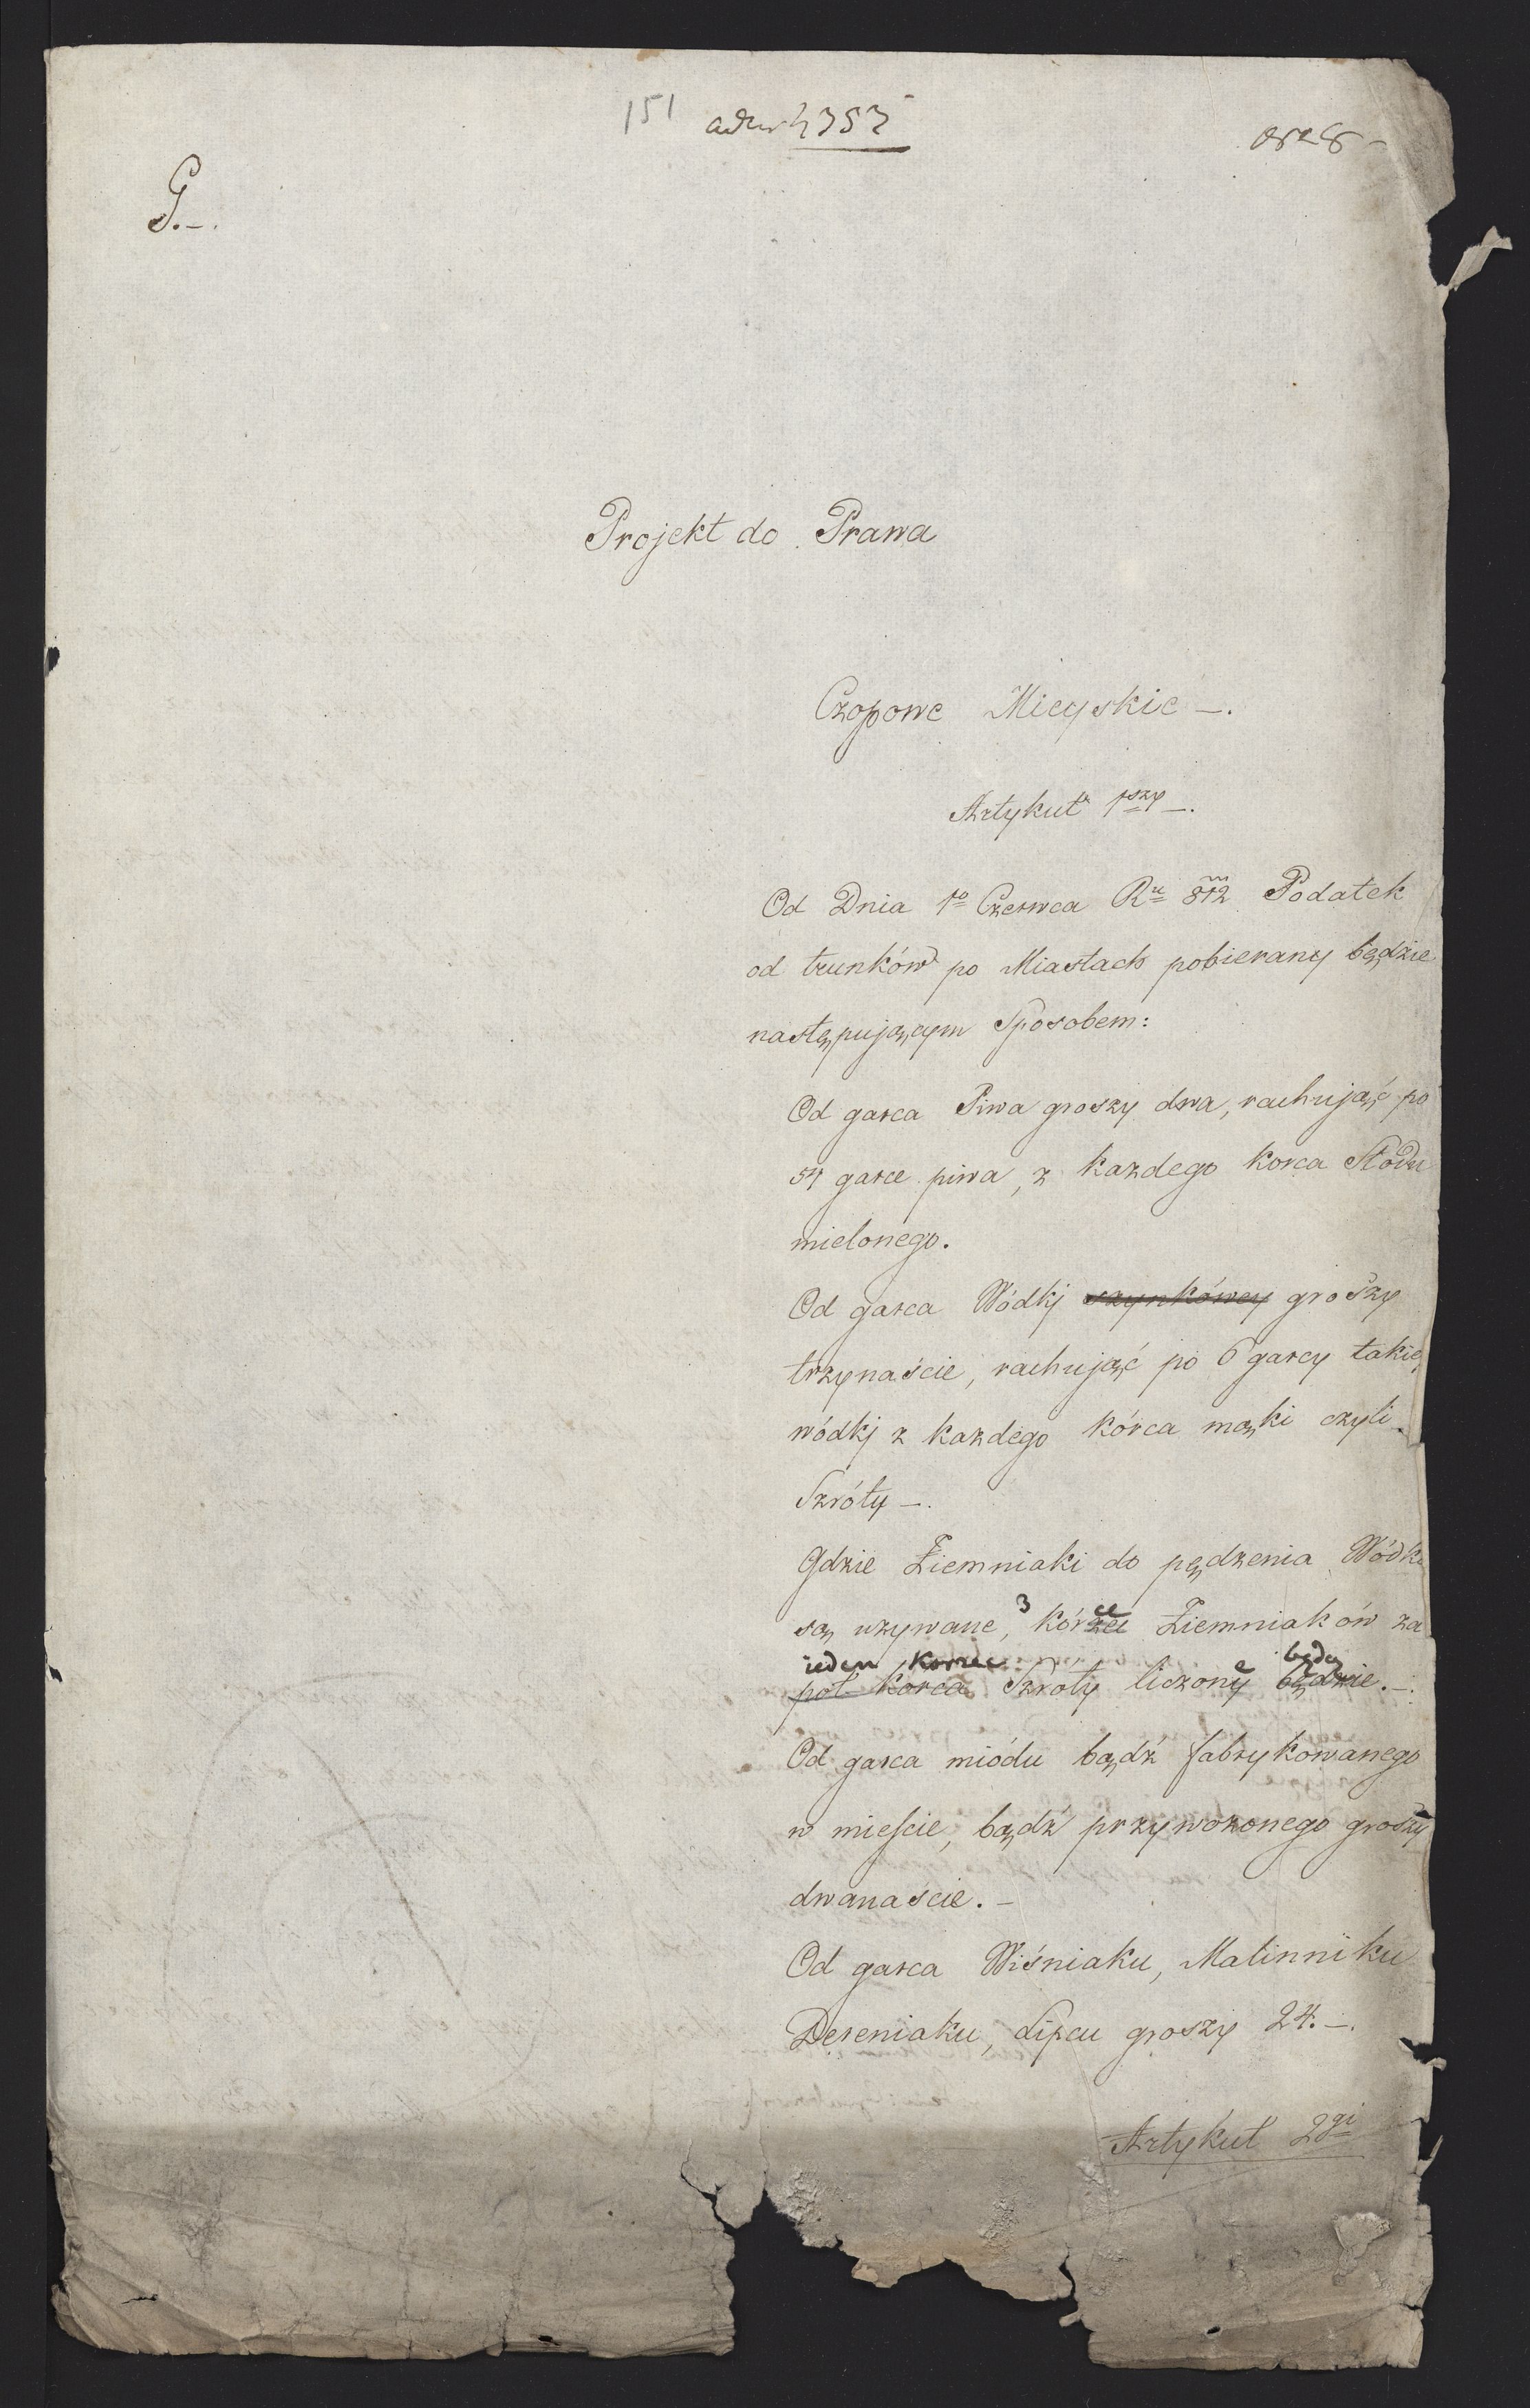 151 4757
G.
Projekt do Prawa
Czopowe Mieyskie —.
Artykuł 1szy —.
Od Dnia 1o Czerwca Ru 812 Podatek
od trunków po Miastach pobierany będzie
następującym Sposobem:
Od garca Piwa groszy dwa, rachująć po
54 garce piwa, z kazdego korca Słodu
mielonego.
Od garca Wódkj szynkówey groszy
trzynaście, rachująć po 6 garcy takie
wódkj z kazdego kórca mąki czyli
Szróty —.
Gdzie Ziemniaki do pędzenia Wódk
są uzywane, 3 kórce Ziemniaków za
ieden korzec będą
pół korca Szróty liczone będzie. —.
Od garca miódu bądź fabrykowanego
w mieście, bądź przywozonego groszy
dwanascie. —
Od garca Wiśniaku, Malinniku
Dereniaku, Lipcu groszy 24. —.
Artykuł 2gi